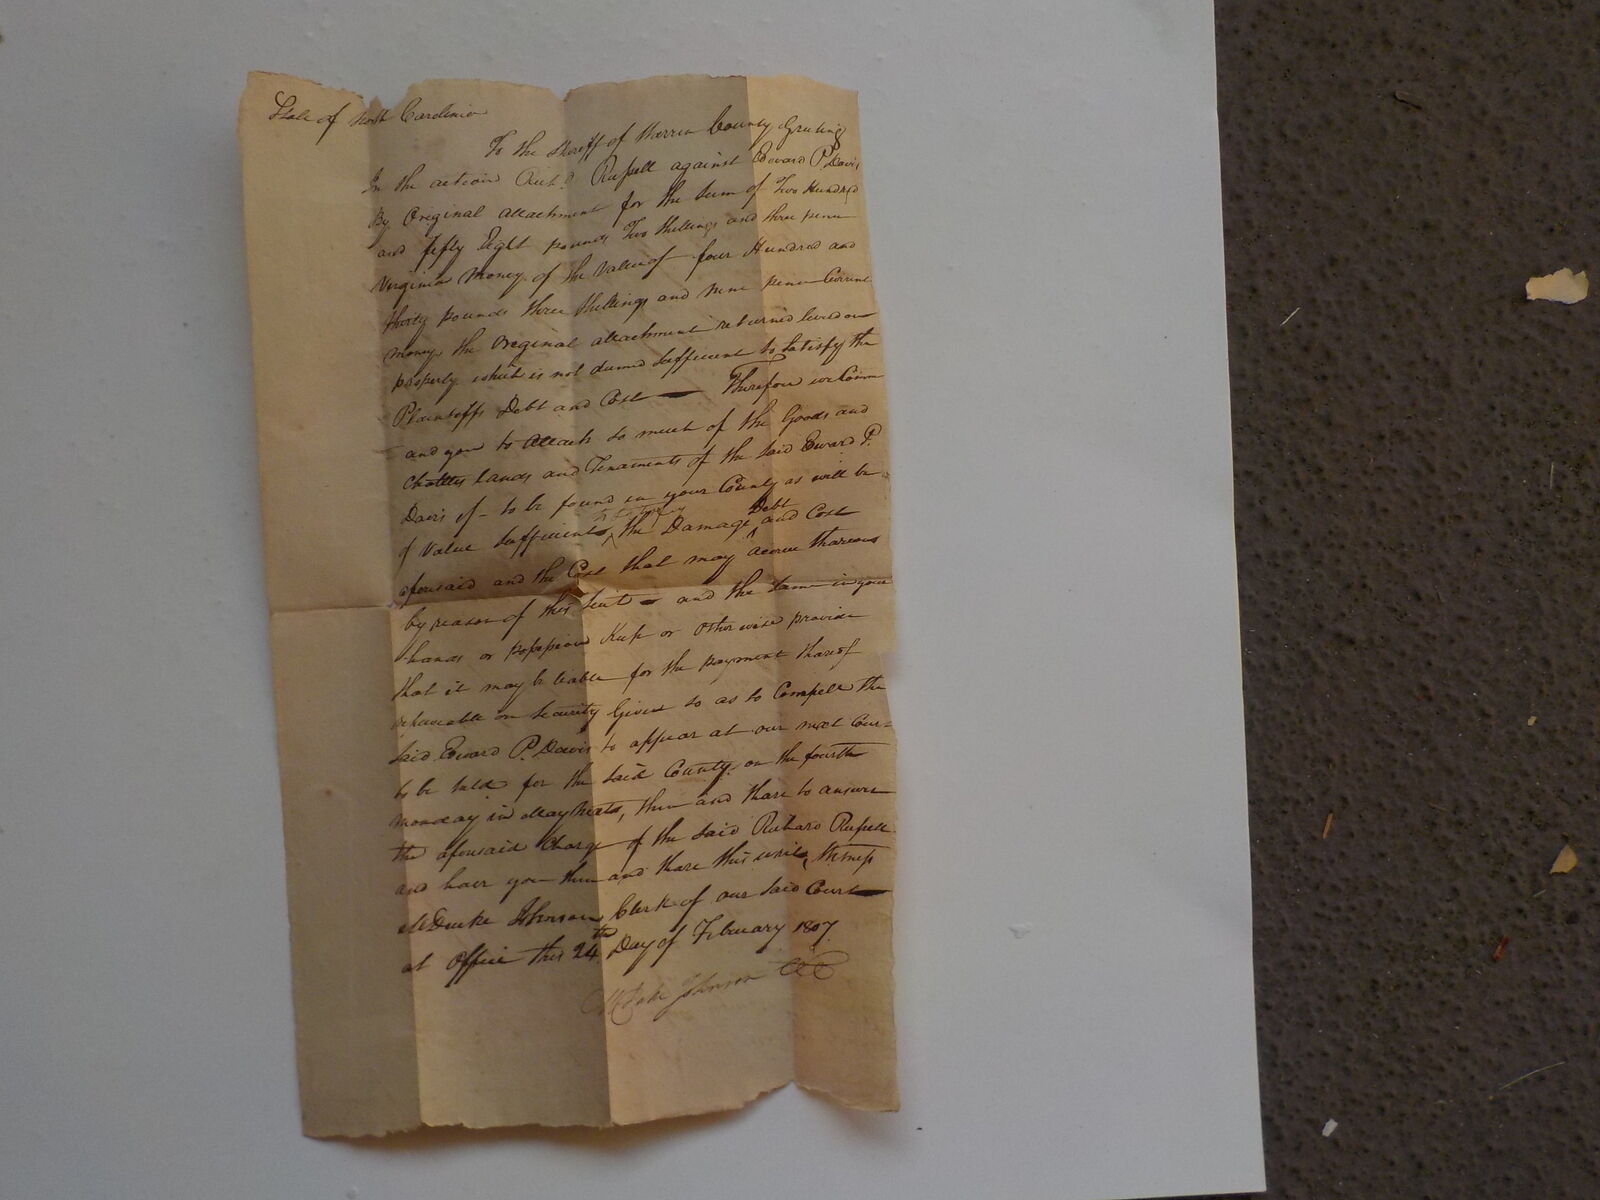 State of North Carolinia
To the Sheriff of Warren County Greeting
In the action Richd. Russell against Edward P. Davis
By Original attachment for the Sum of Two Hundred
and fifty Eight pounds Two Shillings and three pence
Virginia money of the Value of four Hundred and
thirty pounds three Shillings and nine pence Currint
money, the Original attachment returned levied on
property which is not deemed Sufficient to Satisfy the
Plaintiffs Debt and Cost — Therefore we Comm
and you to Attach so much of the Goods and
Chattles Lands and Tenaments of the Said Edward P.
Davis if – to be found in your County as will be
of Value Sufficient to Satisfy the Damage Debt and Cost
aforesaid and the Cost that may accrue thareon
by reason of this Suit – and the Same in your
hands or possession Keep or otherwise provide
that it may be liable for the payment thareof
repleviable on Security Given so as to Compell the
Said Edward P. Davis to appear at our next Court
to be held for the Said County on the fourth
monday in May next, then and thare to answer
the aforesaid Charge of the Said Richard Russell
and have you then and thare this writ, Witness
M Duke Johnson Clerk of our Said Court —
at Office this 24th Day of February 1807
M Duke Johnson CC